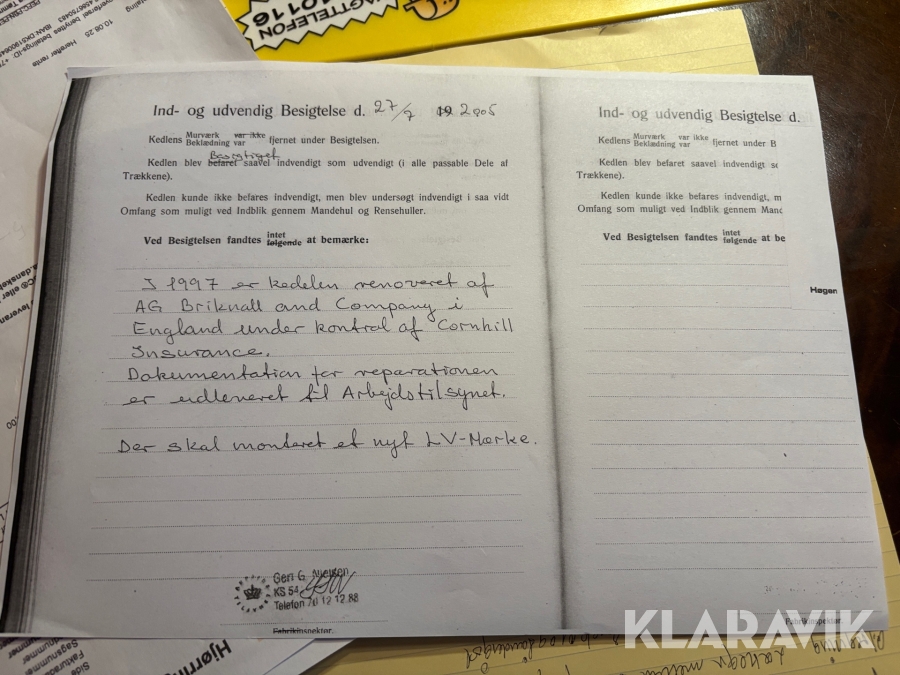 Ind- og udvendig Besigtelse d. 27/7 19 2005
Kedlens Murværk var ikke Beklædning var fjernet under Besigtelsen.
Besigtiget
Kedlen blev befaret saavel indvendigt som udvendigt (i alle passable Dele af
Trækkene).
Kedlen kunde ikke befares indvendigt, men blev undersøgt indvendigt i saa vidt
Omfang som muligt ved Indblik gennem Mandehul og Rensehuller.
Ved Besigtelsen fandtes intet følgende at bemærke:
I 1997 er kedelen renoveret af
AG Briknall and Company i
England under kontrol af Cornhill
Insurance.
Dokumentation for reparationen
er udleveret til Arbejdstilsynet.
Der skal monteret et nyt LV-Mærke.
Geri G. Nielsen
KS 54
Telefon 70 12 12 88
Fabrikinspektør.
Ind- og udvendig Besigtelse d.
Kedlens Murværk var ikke Beklædning var fjernet under B
Kedlen blev befaret saavel indvendigt
Trækkene).
Kedlen kunde ikke befares indvendigt, m
Omfang som muligt ved Indblik gennem Mand
Ved Besigtelsen fandtes intet følgende at be
Høgen
Fabrikinspektør.
KLARAVIK
AGTTELEFON
10116
10.08.25
Herefter rente
Hjørrin
Side
Sagsnummer